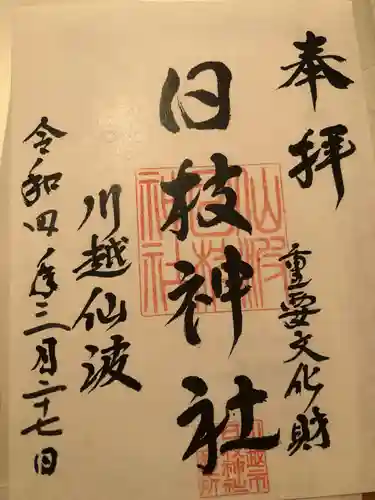 奉拝
重要文化財
日枝神社
川越仙波
令和四年三月二十七日
仙波日枝神社